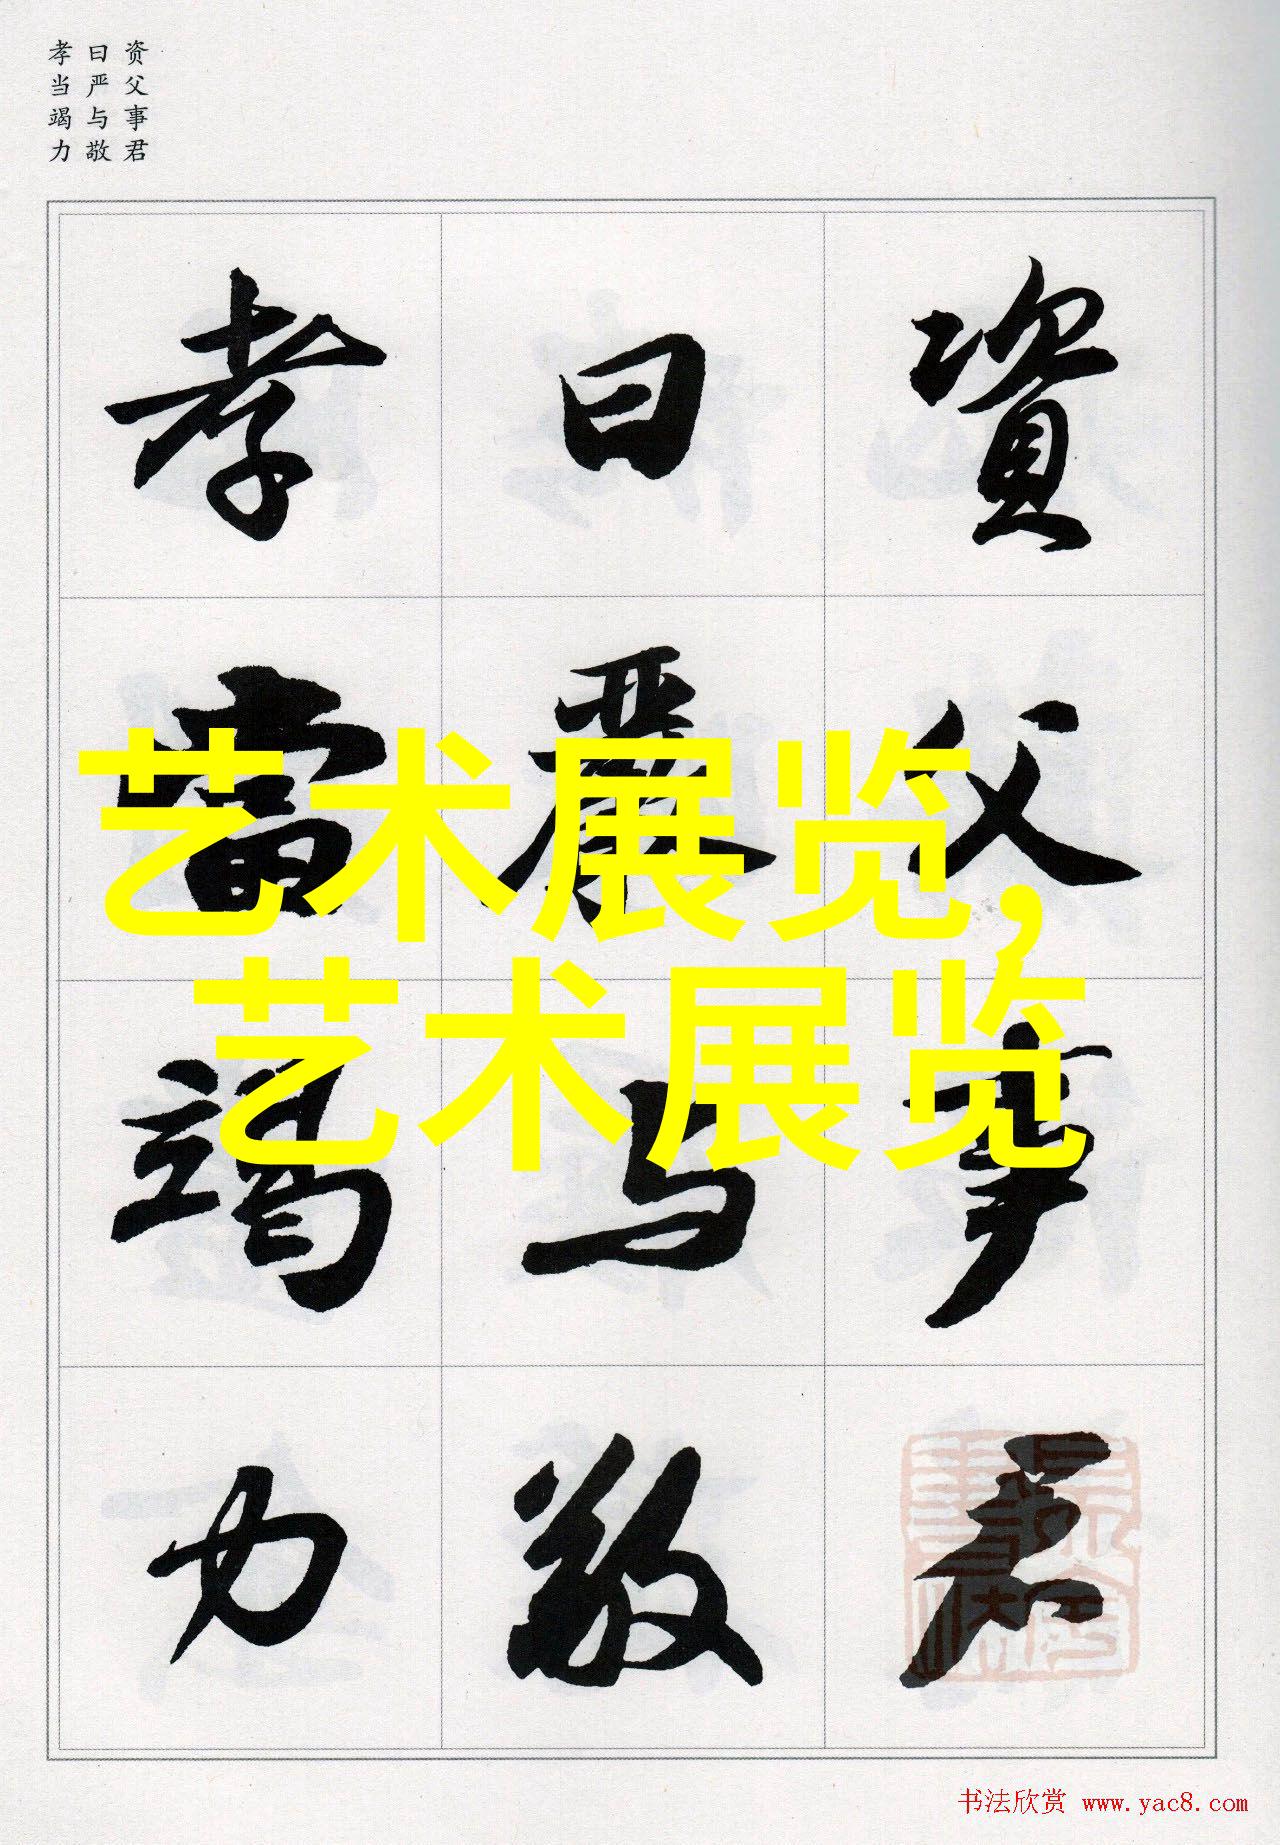 资父事君
曰严与敬
孝当竭力
資父事君
曰嚴与敬
孝當竭力
艺术展览,
艺术展览
书法欣赏 www.yac8.com